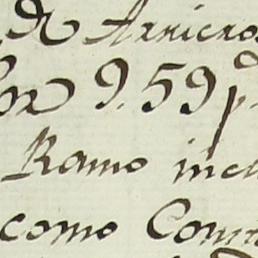 de Arnieros
por 9.59 p.
Ramo inclu
como Com